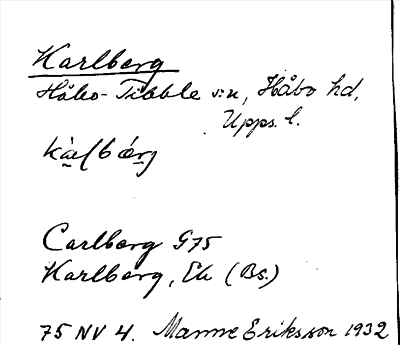 Karlberg
Håbo-Tibble s:n, Håbo hd,
Upps. l.
Carlberg G75
Karlberg, Ek (Bs.)
75 NV 4. Manne Eriksson 1932